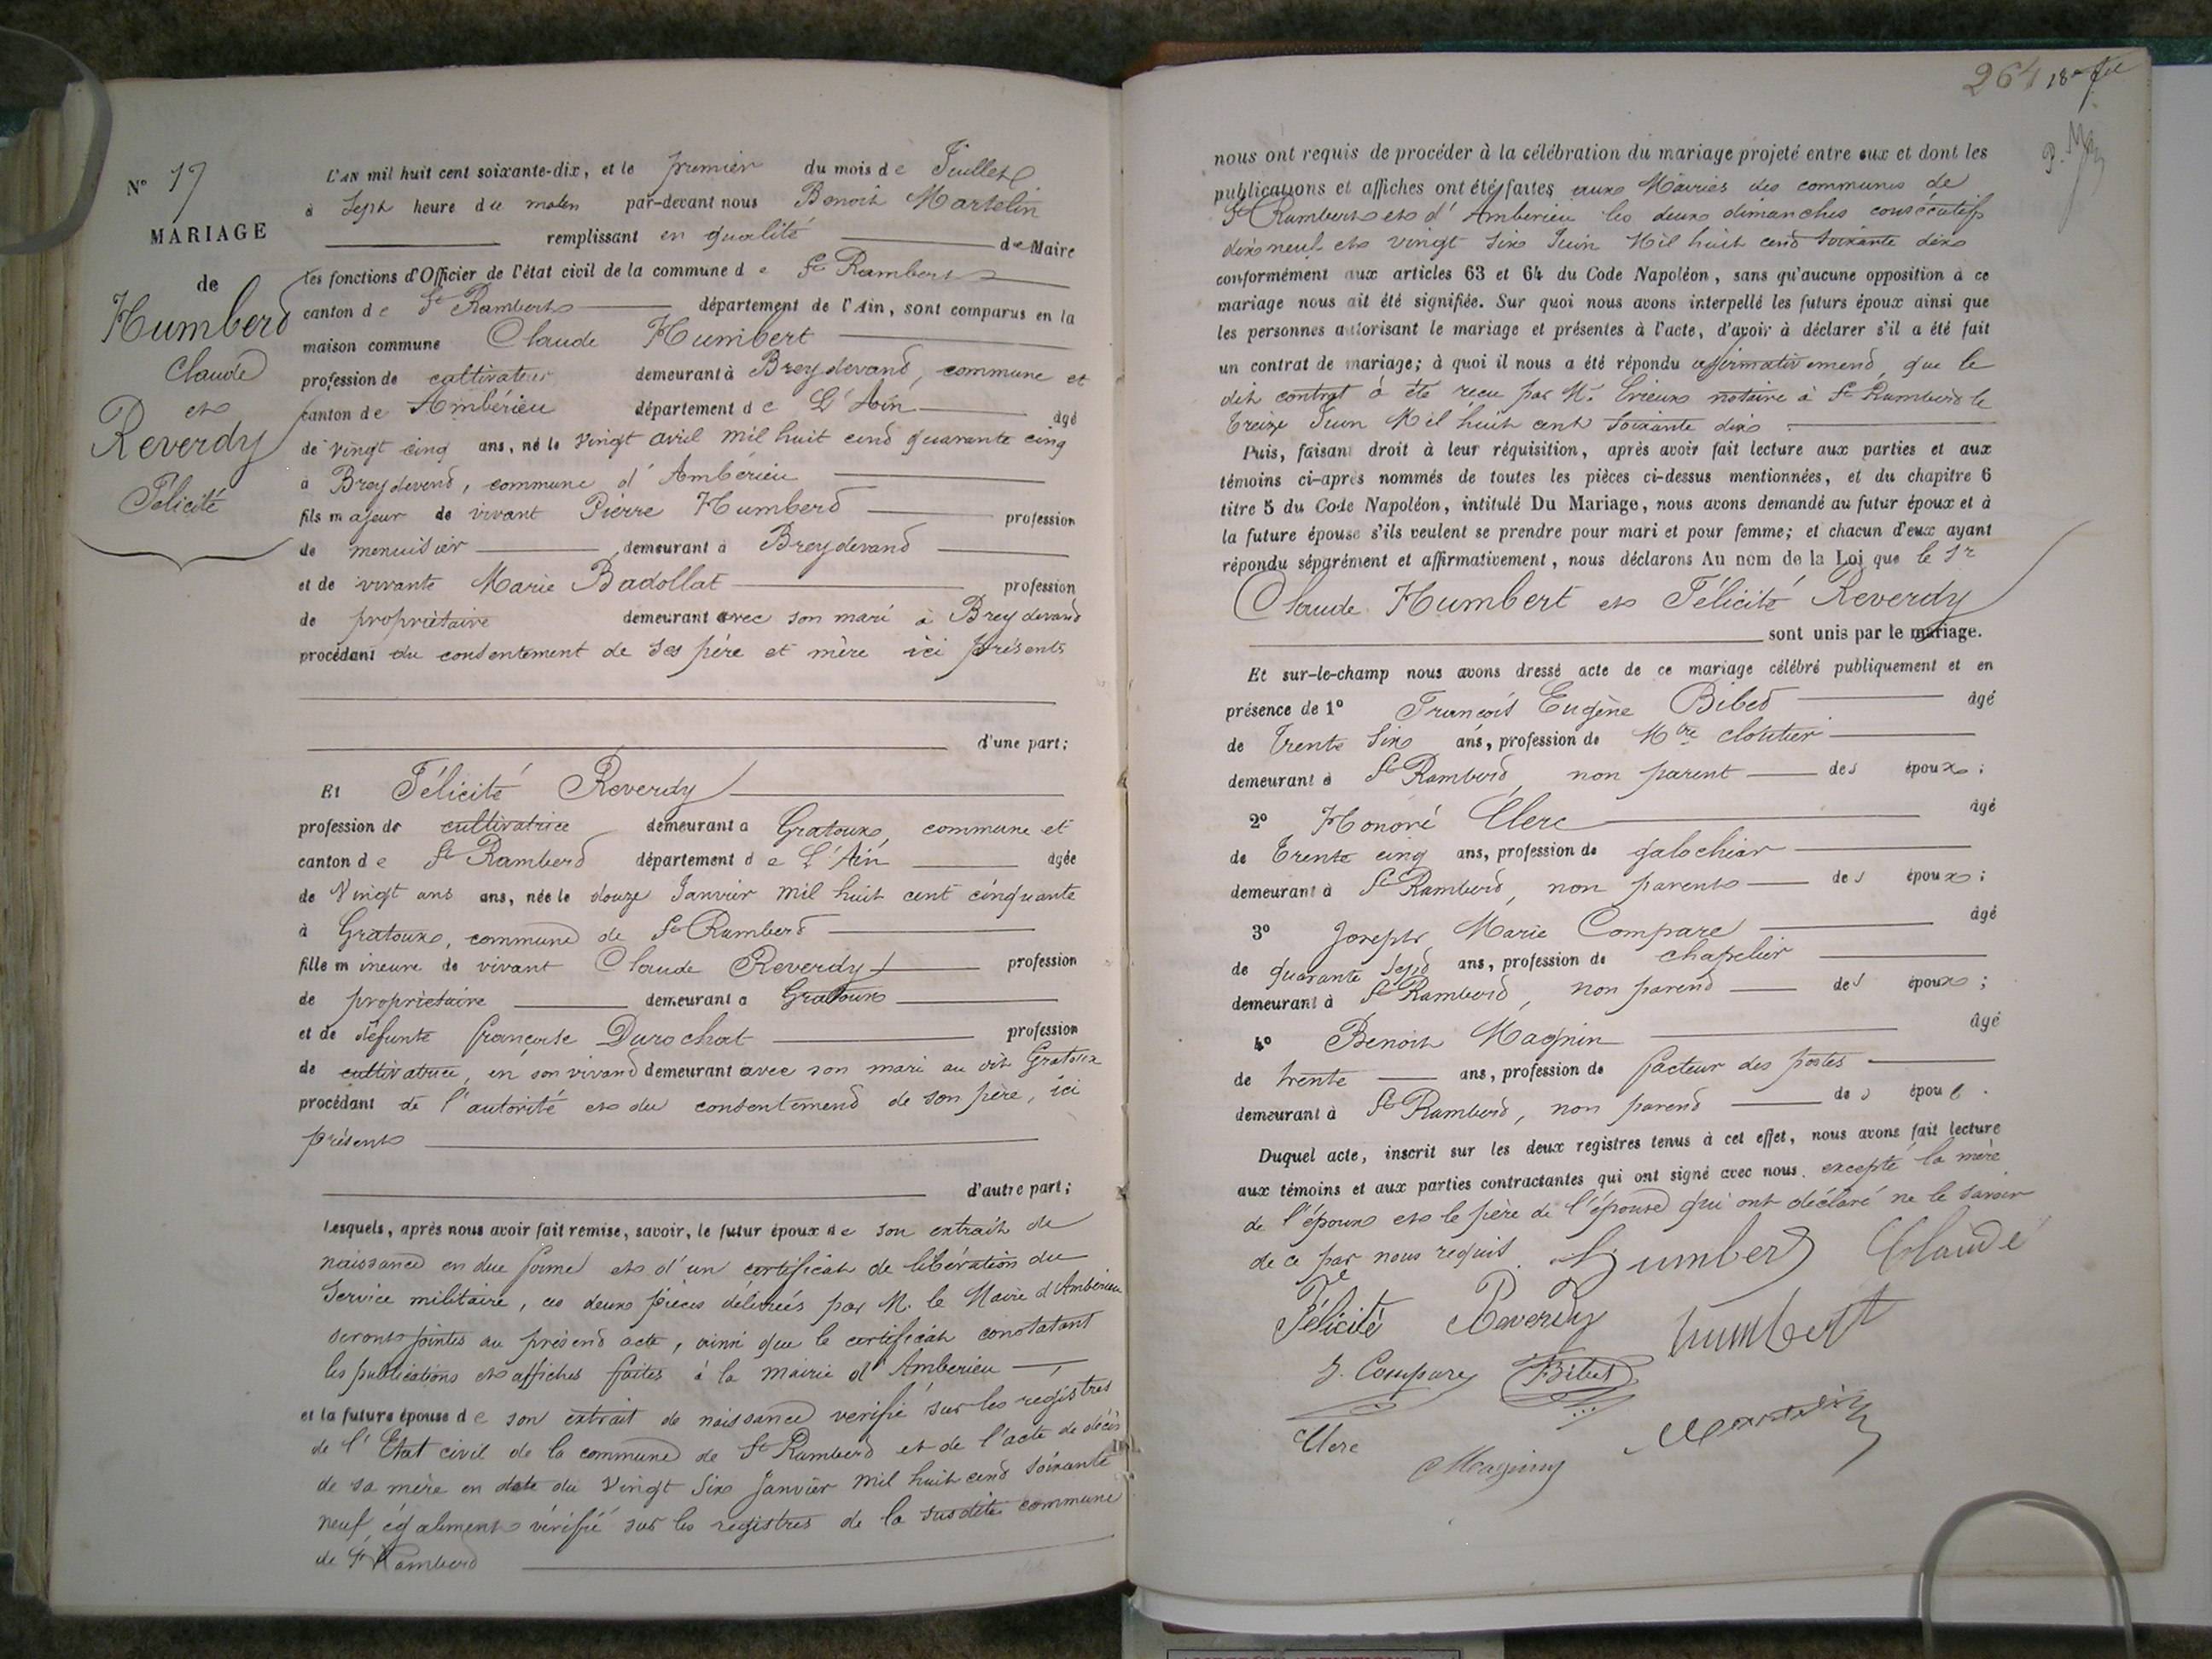 N° 17
MARIAGE
de
Humbert
Claude
et
Reverdy
Félicité
L'AN mil huit cent soixante-dix, et le premier du mois de Juillet
à Sept heure du matin par-devant nous Benoit Martelin
remplissant en qualité de Maire
les fonctions d'Officier de l'état civil de la commune de St Rambert
canton de St Rambert département de l'Ain, sont comparus en la
maison commune Claude Humbert
profession de cultivateur demeurant à Breydevent, commune et
canton de Ambérieu département de L'Ain âgé
de vingt cinq ans, né le vingt avril mil huit cent quarante cinq
à Breydevent, commune d'Ambérieu
fils majeur de vivant Pierre Humbert profession
de menuisier demeurant à Breydevent
et de vivante Marie Badollat profession
de propriétaire demeurant avec son mari à Breydevent
procédant du consentement de ses père et mère ici présents
d'une part;
Et Félicité Reverdy
profession de cultivatrice demeurant à Gratoux, commune et
canton de St Rambert département de L'Ain âgée
de Vingt ans ans, née le douze Janvier mil huit cent cinquante
à Gratoux, commune de St Rambert
fille mineure de vivant Claude Reverdy profession
de propriétaire demeurant à Gratoux
et de défunte françoise Durochat profession
de cultivatrice, en son vivant demeurant avec son mari au dit Gratoux
procédant de l'autorité et du consentement de son père, ici
présent
d'autre part;
Lesquels, après nous avoir fait remise, savoir, le futur époux de son extrait de
naissance en due forme et d'un certificat de libération du
Service militaire, ces deux pièces délivrées par M. le Maire d'Ambérieu
seront jointes au présent acte, ainsi que le certificat constatant
les publications et affiches faites à la mairie d'Amberieu
et la future épouse de son extrait de naissance verifié sur les registres
de l'Etat civil de la commune de St Rambert et de l'acte de décès
de sa mère en date du vingt Six Janvier mil huit cent soixante
neuf également vérifié sur les registres de la susdite commune
de St Rambert
264 18e
nous ont requis de procéder à la célébration du mariage projeté entre eux et dont les
publications et affiches ont été faites aux Mairies des communes de
St Rambert et d'Amberieu les deux dimanches consécutifs
dix neuf et vingt six Juin Mil huit cent soixante dix
conformément aux articles 63 et 64 du Code Napoléon, sans qu'aucune opposition à ce
mariage nous ait été signifiée. Sur quoi nous avons interpellé les futurs époux ainsi que
les personnes autorisant le mariage et présentes à l'acte, d'avoir à déclarer s'il a été fait
un contrat de mariage; à quoi il nous a été répondu affirmativement, que le
dit contrat a été reçu par Me notaire à St Rambert le
treize Juin Mil huit cent soixante dix
Puis, faisant droit à leur réquisition, après avoir fait lecture aux parties et aux
témoins ci-après nommés de toutes les pièces ci-dessus mentionnées, et du chapitre 6
titre 5 du Code Napoléon, intitulé Du Mariage, nous avons demandé au futur époux et à
la future épouse s'ils veulent se prendre pour mari et pour femme; et chacun d'eux ayant
répondu séparément et affirmativement, nous déclarons Au nom de la Loi que le Sr
Claude Humbert et Félicité Reverdy
sont unis par le mariage.
Et sur-le-champ nous avons dressé acte de ce mariage célébré publiquement et en
présence de 1° François Eugène Bibet âgé
de trente Six ans, profession de Mtre cloutier
demeurant à St Rambert, non parent des époux;
2° Honoré Clerc âgé
de Trente cinq ans, profession de galochier
demeurant à St Rambert, non parent des époux;
3° Joseph Marie Compare âgé
de quarante Sept ans, profession de chapelier
demeurant à St Rambert, non parent des époux;
4° Benoit Magnin âgé
de trente ans, profession de facteur des postes
demeurant à St Rambert, non parent des époux.
Duquel acte, inscrit sur les deux registres tenus à cet effet, nous avons fait lecture
aux témoins et aux parties contractantes qui ont signé avec nous. excepté la mère
de l'époux et le père de l'épouse qui ont déclaré ne le savoir
de ce par nous requis. Humbert Claude
Félicité Reverdy humbert
J. Compare Bibet
Clerc Magnin Martelin